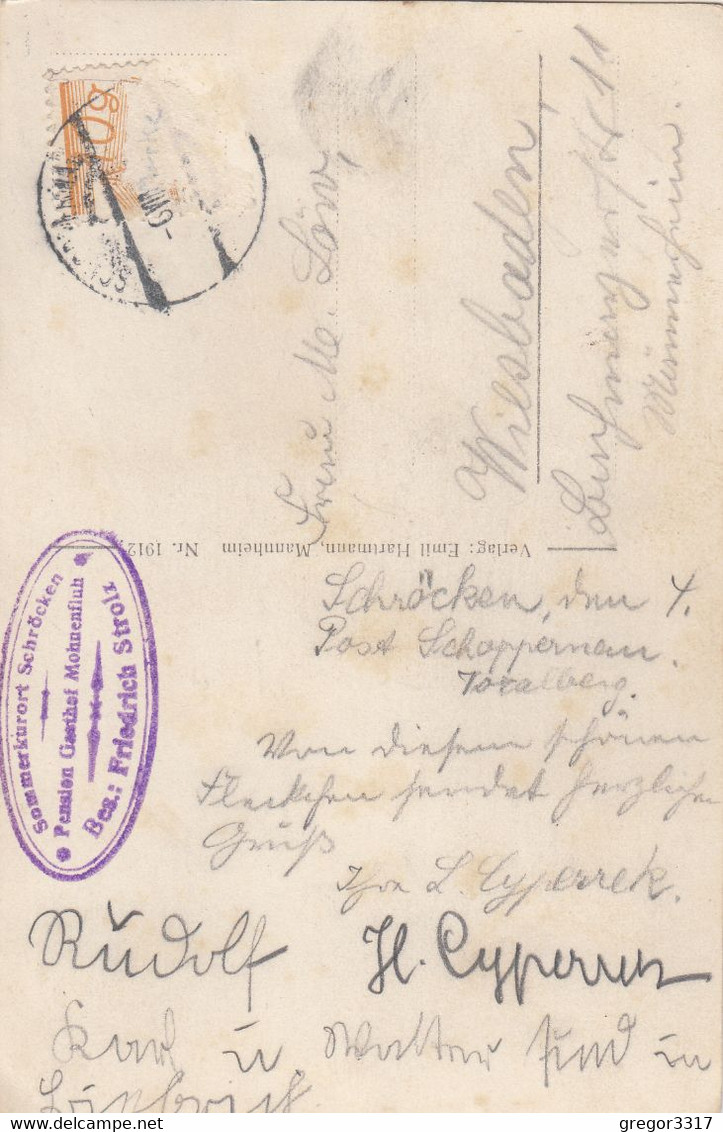 60
Frau M. Löw,
Wiesbaden,
11
Verlag: Emil Hartmann, Mannheim Nr. 1912
Sommerkurort Schröcken
Pension Gasthof Mohnenfluh
Bes.: Friedrich Strolz
Schröcken, den 4.
Post Schoppernau.
Voralberg.
Von diesem schönen
Fleckchen sendet herzlichen
Gruß
Ihre L. Cyperrek.
Rudolf H. Cyperrek
Karl u Walter sind in
gregor3317